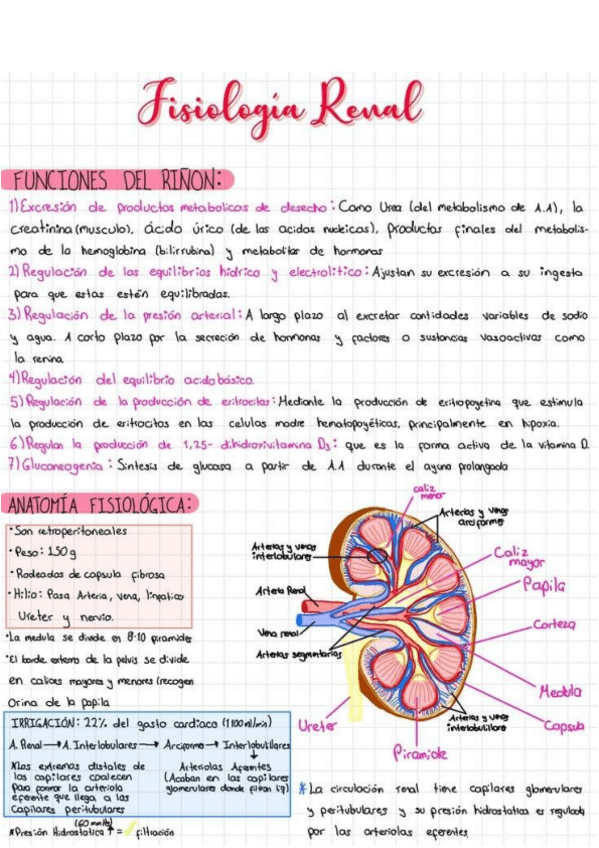 Fisiología Renal
FUNCIONES DEL RIÑON:
1) Excresión de productos metabolicos de desecho: Como Urea (del metabolismo de A.A), la
creatinina (musculo), ácido úrico (de las acidos nucleicos), productos finales del metabolis-
mo de la hemoglobina (bilirrubina) y metabolitos de hormonas
2) Regulación de los equilibrios hídrico y electrolítico: Ajustan su excresión a su ingesta
para que estas estén equilibradas.
3) Regulación de la presión arterial: A largo plazo al excretar cantidades variables de sodio
y agua. A corto plazo por la secreción de hormonas y factores o sustancias vasoactivas como
la renina
4) Regulación del equilibrio acido básico.
5) Regulación de la producción de eritrocitos: Mediante la producción de eritopoyetina que estimula
la producción de eritocitos en las celulas madre hematopoyéticas, principalmente en hipoxia.
6) Regulan la producción de 1,25- dihidroxivitamina D3: que es la forma activa de la vitamina D.
7) Gluconeogenia: Sintesis de glucosa a partir de A.A durante el ayuno prolongado
ANATOMÍA FISIOLÓGICA:
• Son retroperitoneales
• Peso: 150 g
• Rodeados de capsula fibrosa
• Hilio: Pasa Arteria, vena, linfatico
Ureter y nervio.
• La medula se divide en 8-10 piramides
• El borde externo de la pelvis se divide
en calices mayores y menores (recogen
Orina de la papila
caliz
menor
Arterias y venas
arciformes
Arterias y venas
interlobulares
Caliz
mayor
Papila
Arteria Renal
Corteza
Vena renal
Arterias segmentarias
Medula
Ureter
Arterias y venas
interlobulillare
Capsula
Piramide
IRRIGACIÓN: 22% del gasto cardiaco (1100 ml/min)
A. Renal → A. Interlobulares → Arciforme → Interlobulillares
*Las extremos distales de
los capilares coalecen
para formar la arteriola
eferente que llega a las
Capilares peritubulares
Arteriolas Aferentes
(Acaban en los capilares
glomerulares donde filtran liq)
(60 mmHg)
*Presión Hidrostatica ↑ = filtración
* La circulación renal tiene capilares glomerulares
y peritubulares y su presión hidrostatica es regulada
por las arteriolas eferentes